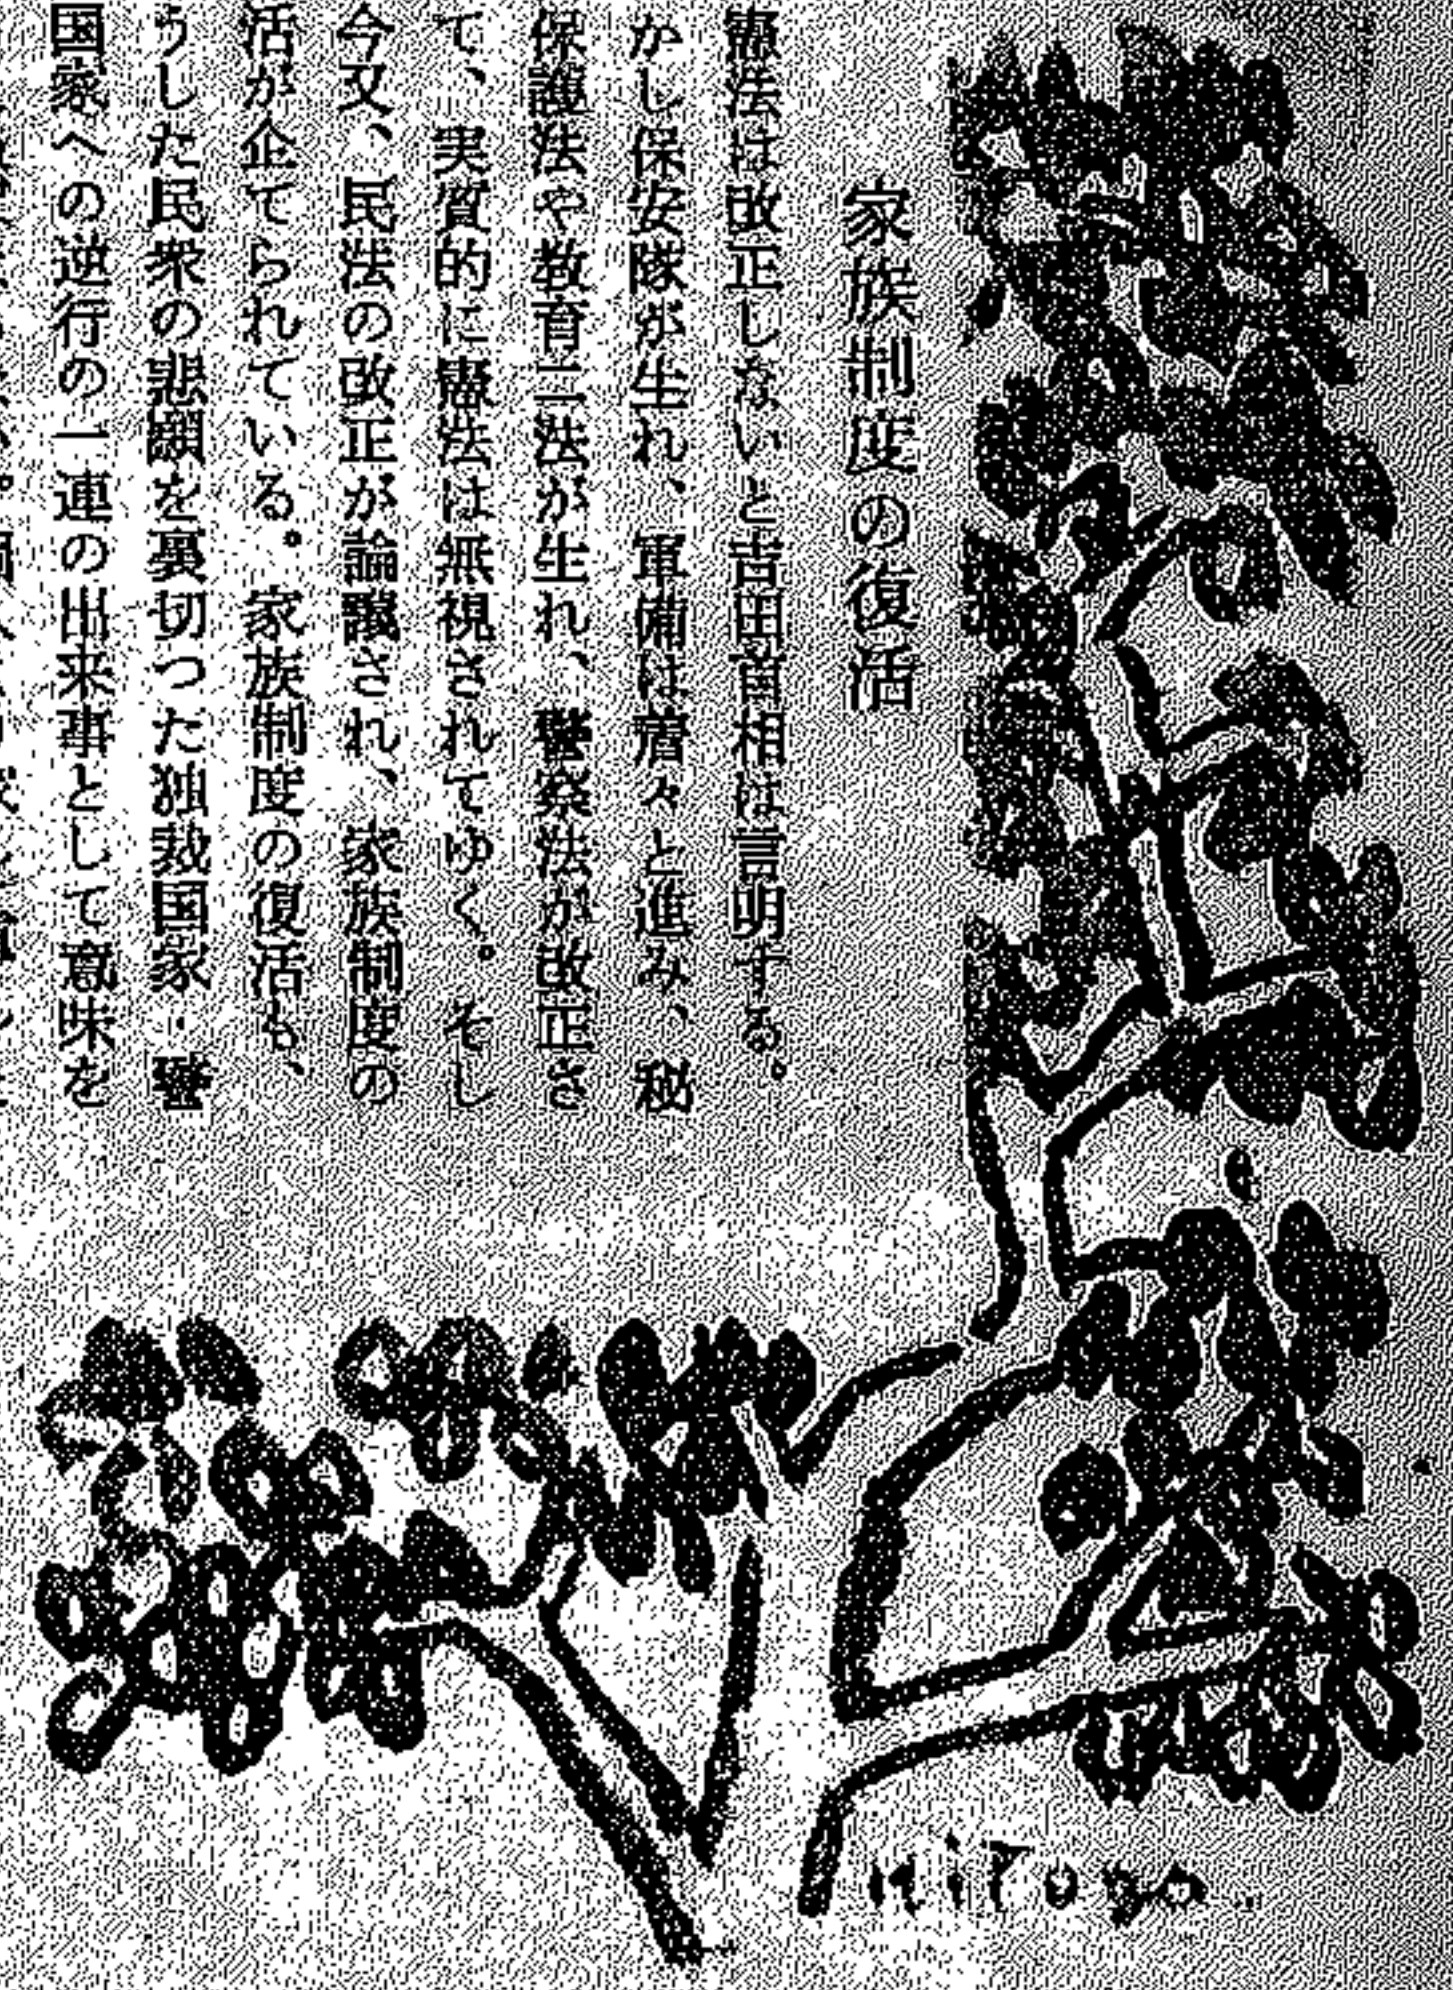 家族制度の復活
憲法は改正しないと吉田首相は言明する。
かし保安隊が生れ、軍備は着々と進み、秘
保護法や教育二法が生れ、警察法が改正さ
て、実質的に憲法は無視されてゆく。そし
今又、民法の改正が論議され、家族制度の
活が企てられている。家族制度の復活も、
うした民衆の悲願を裏切つた独裁国家・警
国家への逆行の一連の出来事として意味を